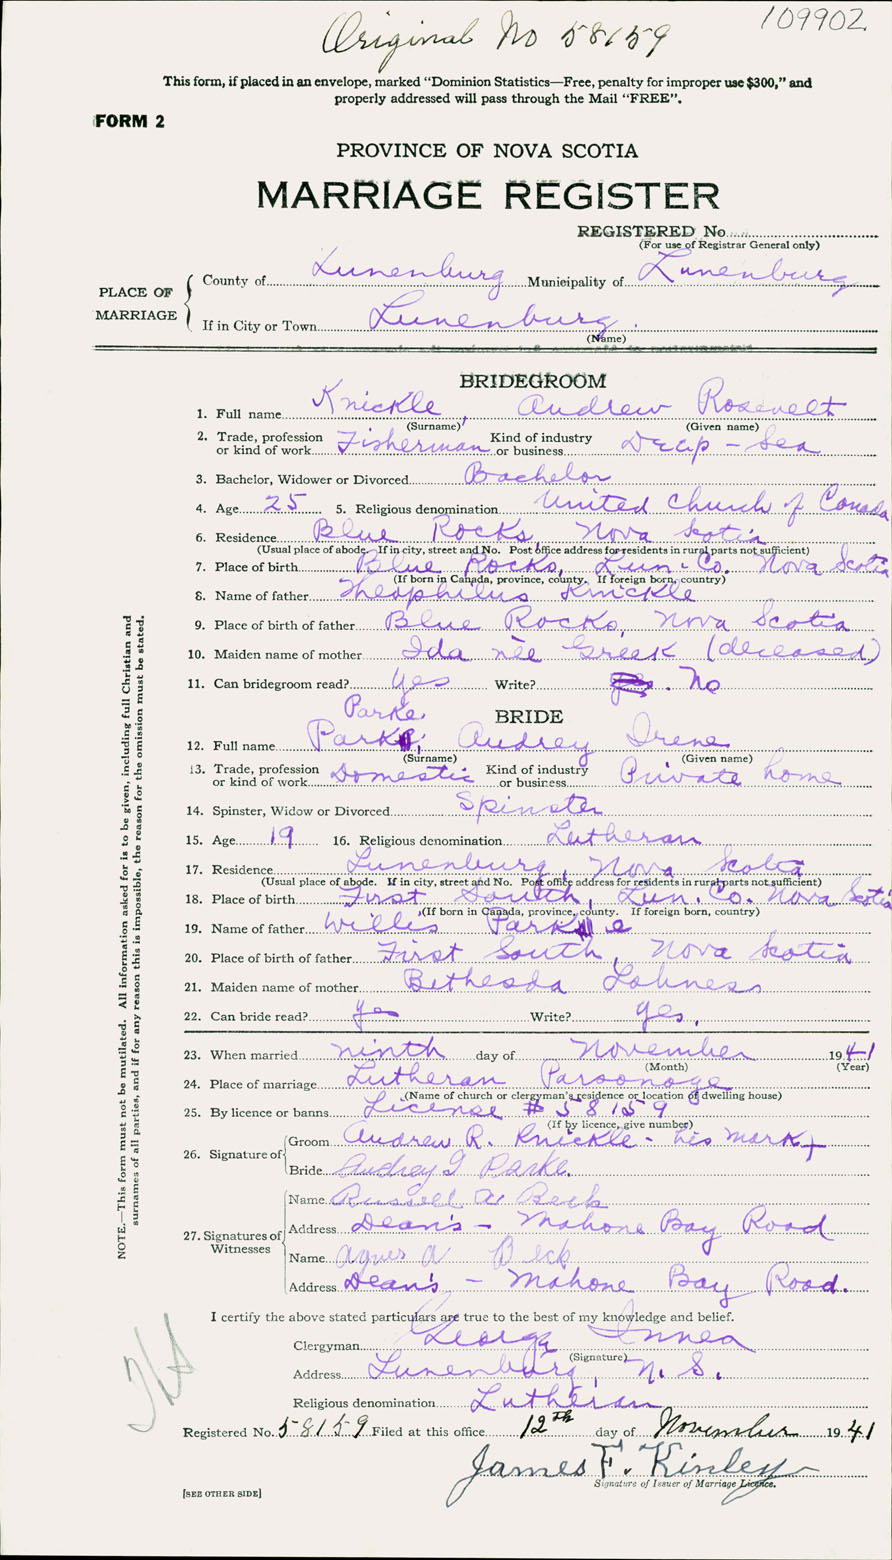 Original No 58159
109902
This form, if placed in an envelope, marked “Dominion Statistics—Free, penalty for improper use $300,” and
properly addressed will pass through the Mail “FREE”.
FORM 2
PROVINCE OF NOVA SCOTIA
MARRIAGE REGISTER
REGISTERED No.
(For use of Registrar General only)
PLACE OF MARRIAGE
County of Lunenburg Municipality of Lunenburg
If in City or Town Lunenburg.
(Name)
BRIDEGROOM
1. Full name Knickle, Andrew Rosevelt
(Surname) (Given name)
2. Trade, profession or kind of work Fisherman Kind of industry or business Deep - Sea
3. Bachelor, Widower or Divorced Bachelor
4. Age 25 5. Religious denomination United Church of Canada
6. Residence Blue Rocks, Nova Scotia
(Usual place of abode. If in city, street and No. Post office address for residents in rural parts not sufficient)
7. Place of birth Blue Rocks, Lun. Co. Nova Scotia
(If born in Canada, province, county. If foreign born, country)
8. Name of father Theophilus Knickle
9. Place of birth of father Blue Rocks, Nova Scotia
10. Maiden name of mother Ida née Greek (deceased)
11. Can bridegroom read? Yes Write? No
Parke,
BRIDE
12. Full name Park, Audrey Irene
(Surname) (Given name)
13. Trade, profession or kind of work Domestic Kind of industry or business Private home
14. Spinster, Widow or Divorced Spinster
15. Age 19 16. Religious denomination Lutheran
17. Residence Lunenburg, Nova Scotia
(Usual place of abode. If in city, street and No. Post office address for residents in rural parts not sufficient)
18. Place of birth First South, Lun. Co. Nova Scotia
(If born in Canada, province, county. If foreign born, country)
19. Name of father Willis Parke
20. Place of birth of father First South, Nova Scotia
21. Maiden name of mother Bethesda Lohnes
22. Can bride read? yes Write? yes.
23. When married ninth day of November 1941
(Month) (Year)
24. Place of marriage Lutheran Parsonage
(Name of church or clergyman's residence or location of dwelling house)
25. By licence or banns License # 58159
(If by licence, give number)
26. Signature of
Groom Andrew R. Knickle - his mark +
Bride Audrey I Parke.
27. Signatures of Witnesses
Name Russell A Beck
Address Dean's - Mahone Bay Road
Name Agnes A Beck
Address Dean's - Mahone Bay Road.
I certify the above stated particulars are true to the best of my knowledge and belief.
Clergyman George Innes
(Signature)
Address Lunenburg, N. S.
Religious denomination Lutheran
Registered No. 58159 Filed at this office 12th day of November 1941
James F. Kinley
Signature of Issuer of Marriage Licence.
[SEE OTHER SIDE]
NOTE.—This form must not be mutilated. All information asked for is to be given, including full Christian and
surnames of all parties, and if for any reason this is impossible, the reason for the omission must be stated.